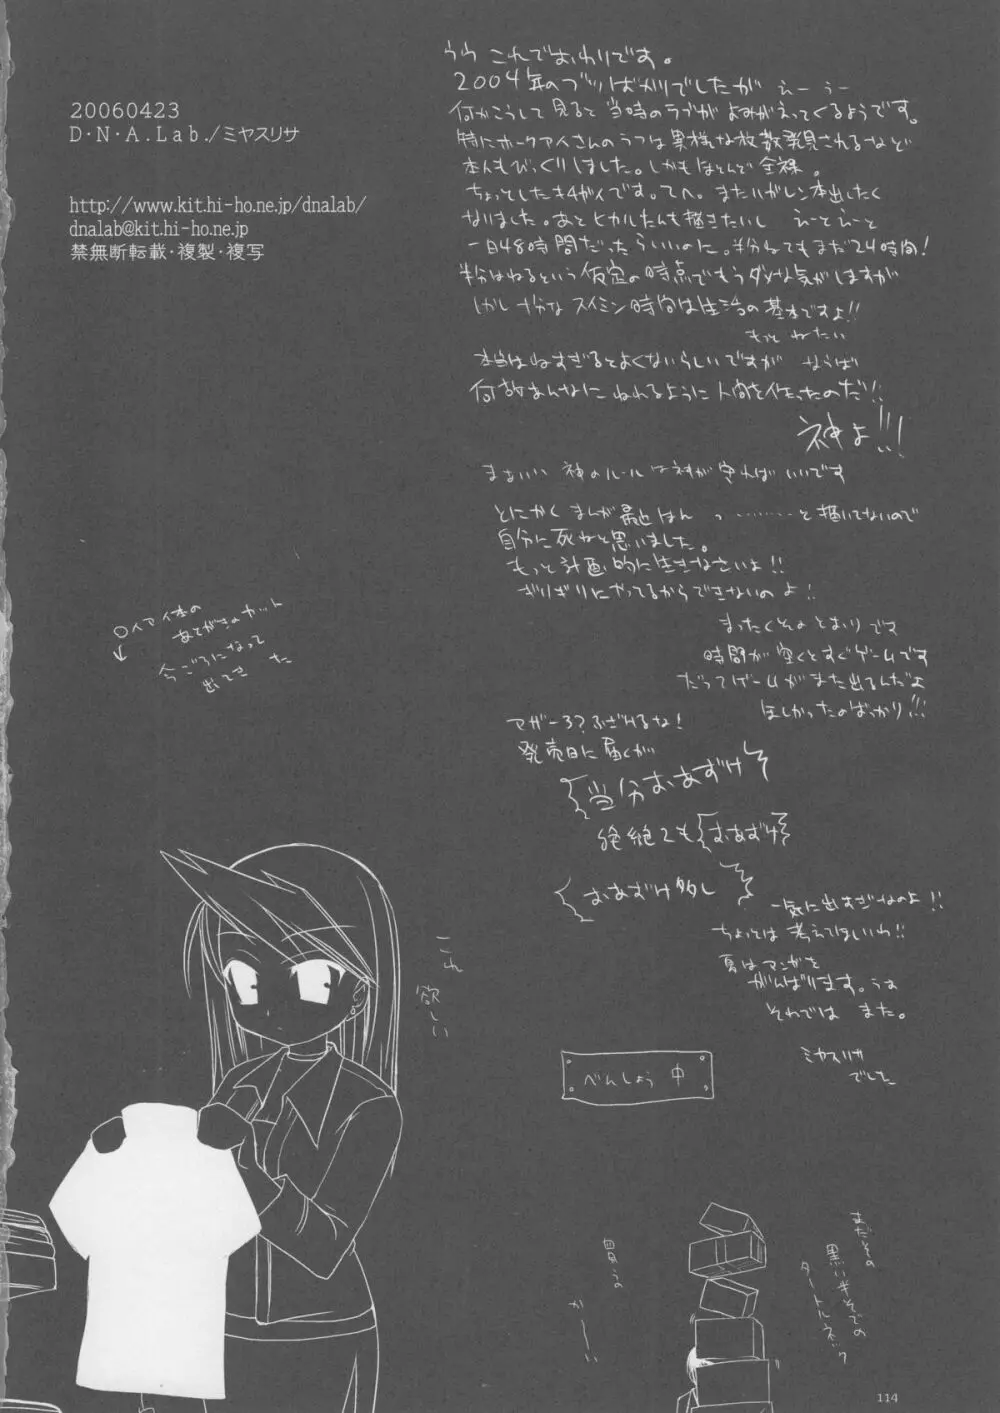 20060423
D・N・A.Lab./ミヤスリサ
http://www.kit.hi-ho.ne.jp/dnalab/
dnalab@kit.hi-ho.ne.jp
禁無断転載・複製・複写
うう これでおわりです。
2004年のブツばかりでしたが えー うー
何かこうして見ると当時のラブがよみがえってくるようです。
特にホークアイさんのラフは異様な枚数発見されるなど
本人もびっくりしました。しかもほとんど全裸。
ちょっとしたキ4ガイです。てへ。またハガレン本出したく
なりました。あとヒカルたんも描きたいし えーとえーと
一日48時間だったらいいのに。半分ねてもまだ24時間!
半分はねるという仮定の時点でもうダメな気がしますが
しかし十分なスイミン時間は生活の基本ですよ!!
もっと ねたい
本当はねすぎるとよくないらしいですが ならば
何故あんなにねれるように人間を作ったのだ!!
神よ!!!
まあいい 神のルールは神が守ればいいです
とにかく まんが最近はんっ………と描いてないので
自分に死ねと思いました。
もっと計画的に生きなさいよ!!
ギリギリにやってるからできないのよ!!
まったくそのとおりです
時間が空くとすぐゲームです
だってゲームがまた出るんだよ
ほしかったのばっかり!!!
マザー3?ふざけるな!
発売日に届くが
当分おあずけ
おあずけ
おあずけ多し
一気に出すぎなのよ!!
ちょっとは考えてほしいわ!!
夏はマンガを
がんばります。うお
それでは また。
ミヤスリサ
でした
○イアイ本の
あとがきのカット
今ごろになって
出てきた
これ
欲しい
べんしょう中
買うの
かーい
まだその
黒い半そでの
タートルネック
114